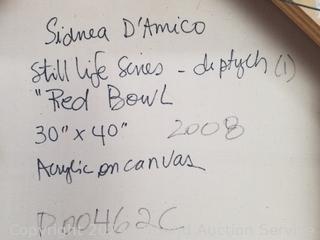 Sidnea D'Amico
Still Life Series - diptych (1)
"Red Bowl
30" x 40" 2008
Acrylic on canvas
D00462C
Auction Service